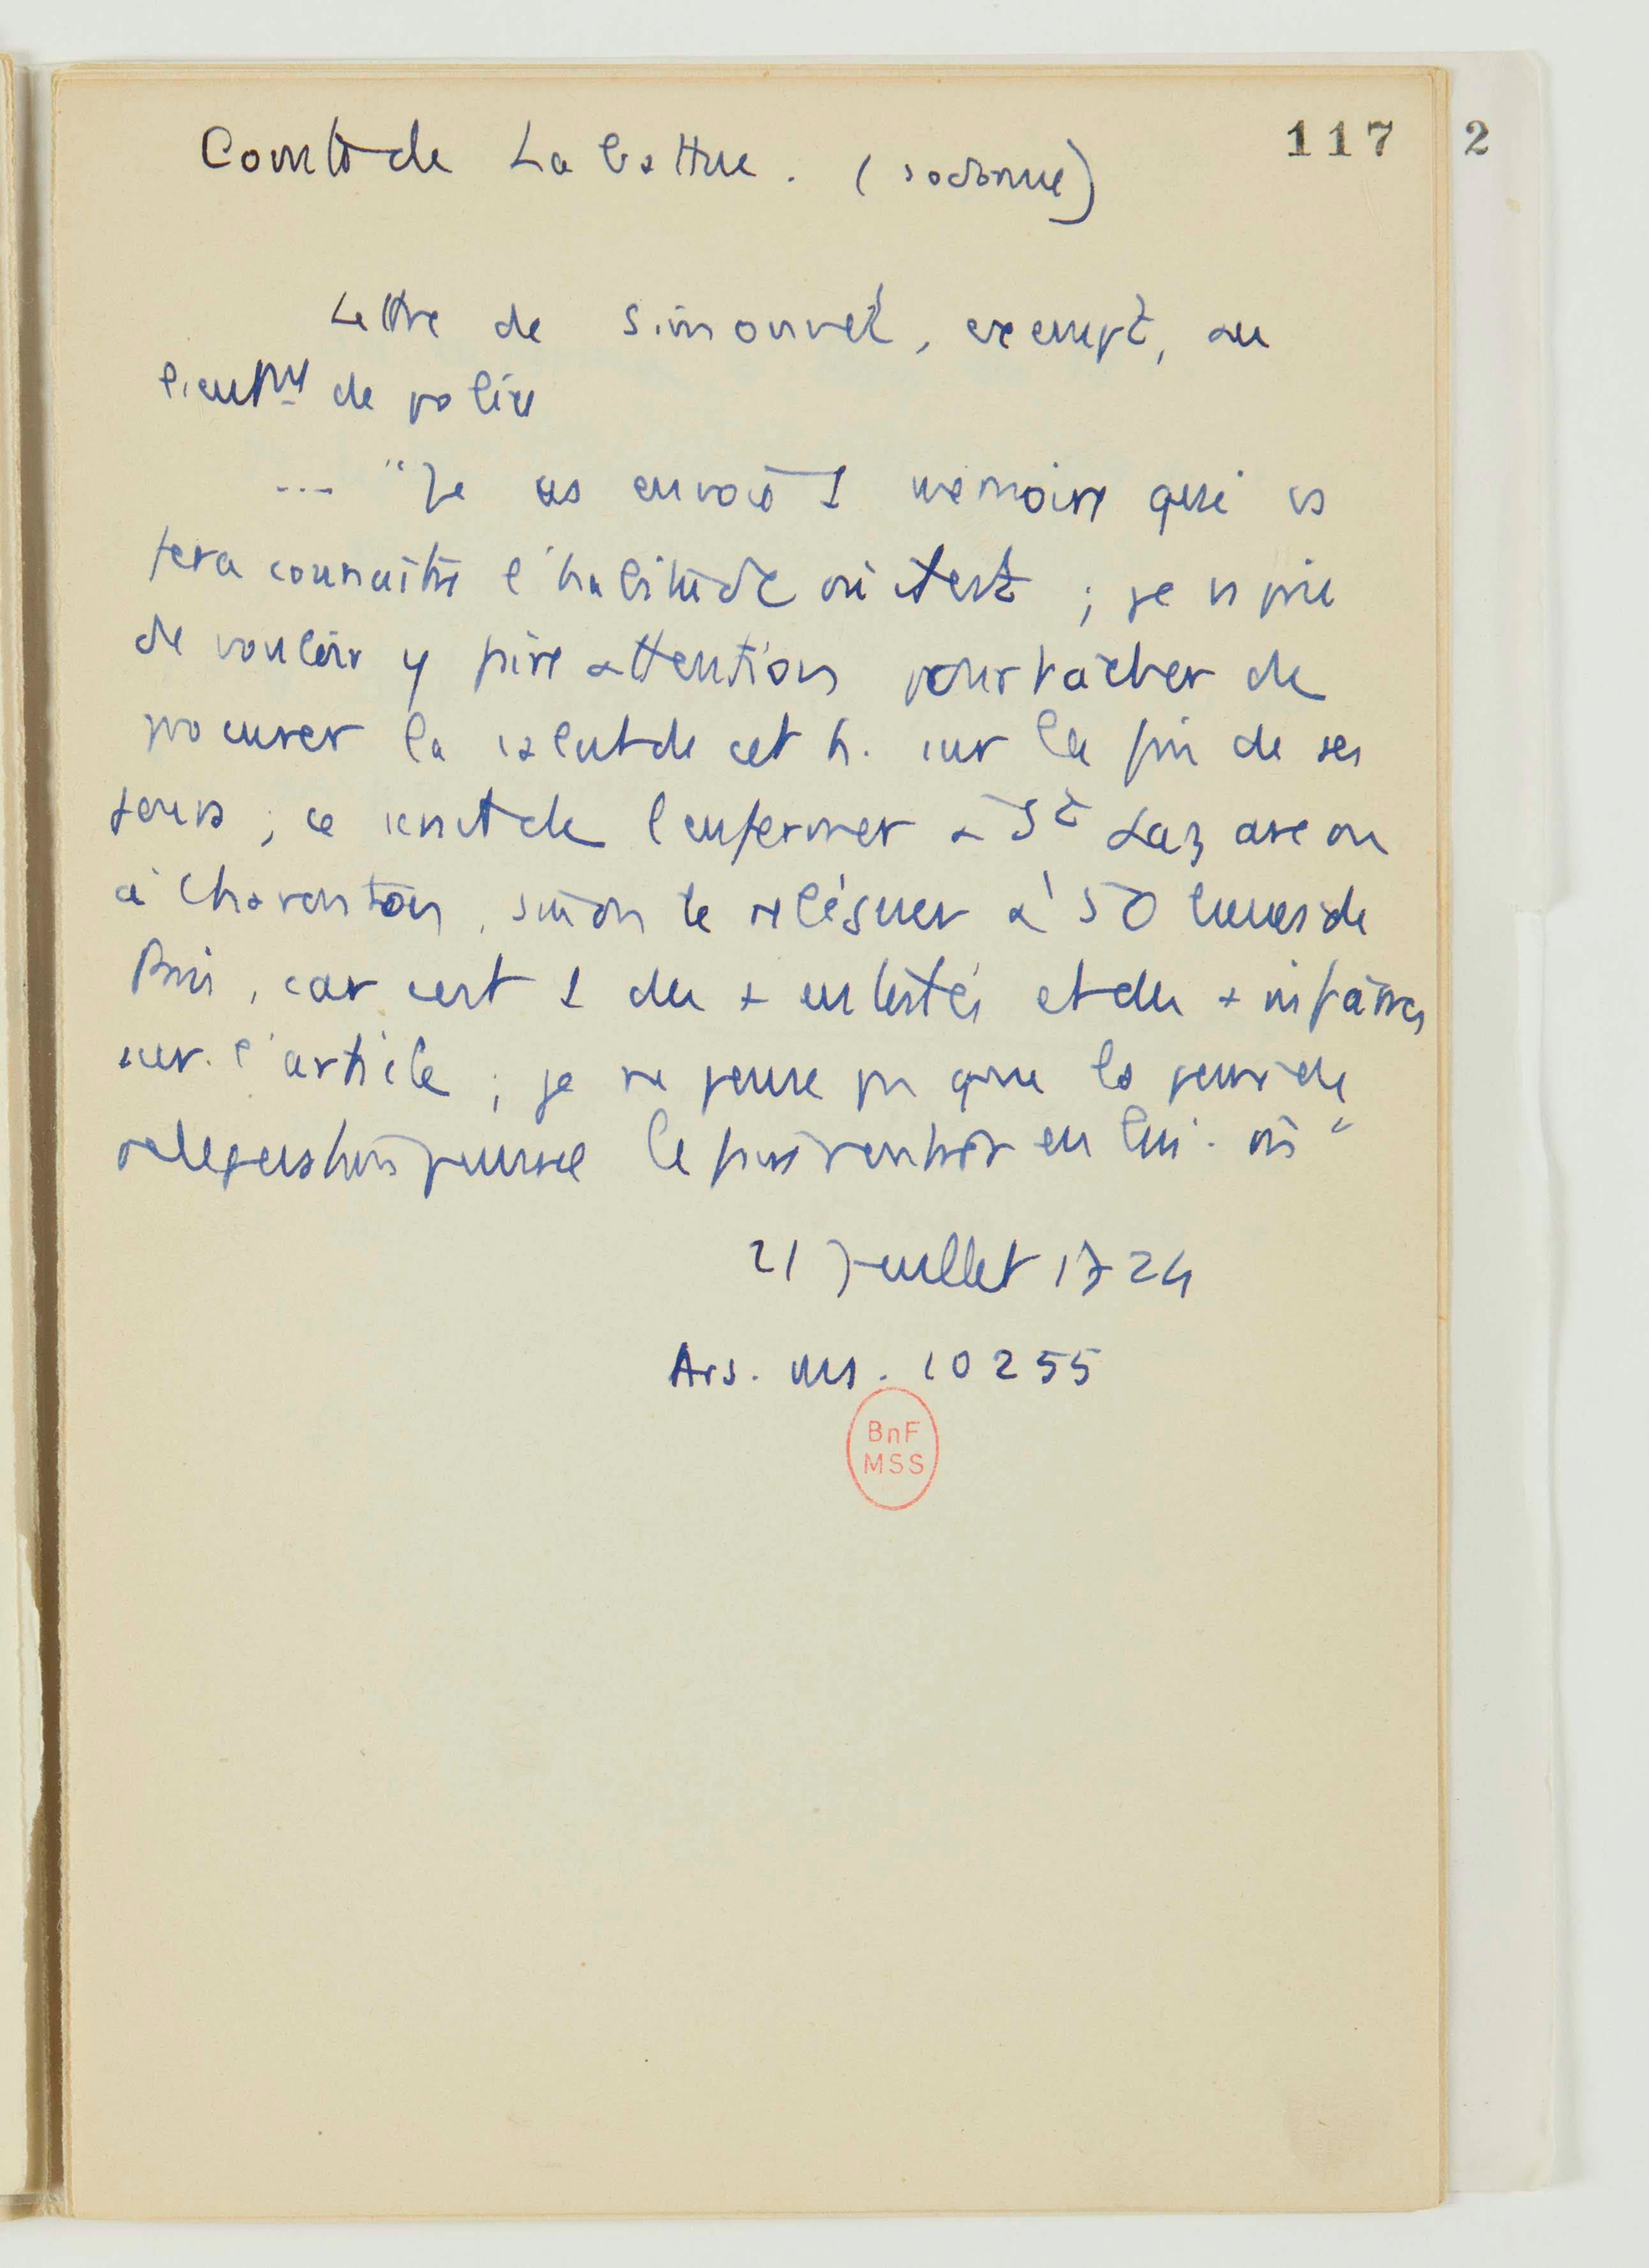 117 2
Comte de La Battue. (sodomie)
Lettre de Simonnet, exempt, au
lieut de police
... "Je vs envoie 1 memoire qui vs
fera connaître l'habitude où il est ; je vs prie
de vouloir y faire attention pour tâcher de
procurer la salut de cet h. sur la fin de ses
jours ; ce serait de l'enfermer à St Lazare ou
à Charenton, sinon le reléguer à 50 lieues de
Paris, car c'est 1 des + entestés et des + infâmes
sur l'article ; je ne pense pas que la peur de
relegation puisse le faire rentrer en lui-m"
21 Juillet 1724
Ars. ms. 10255
BnF
MSS